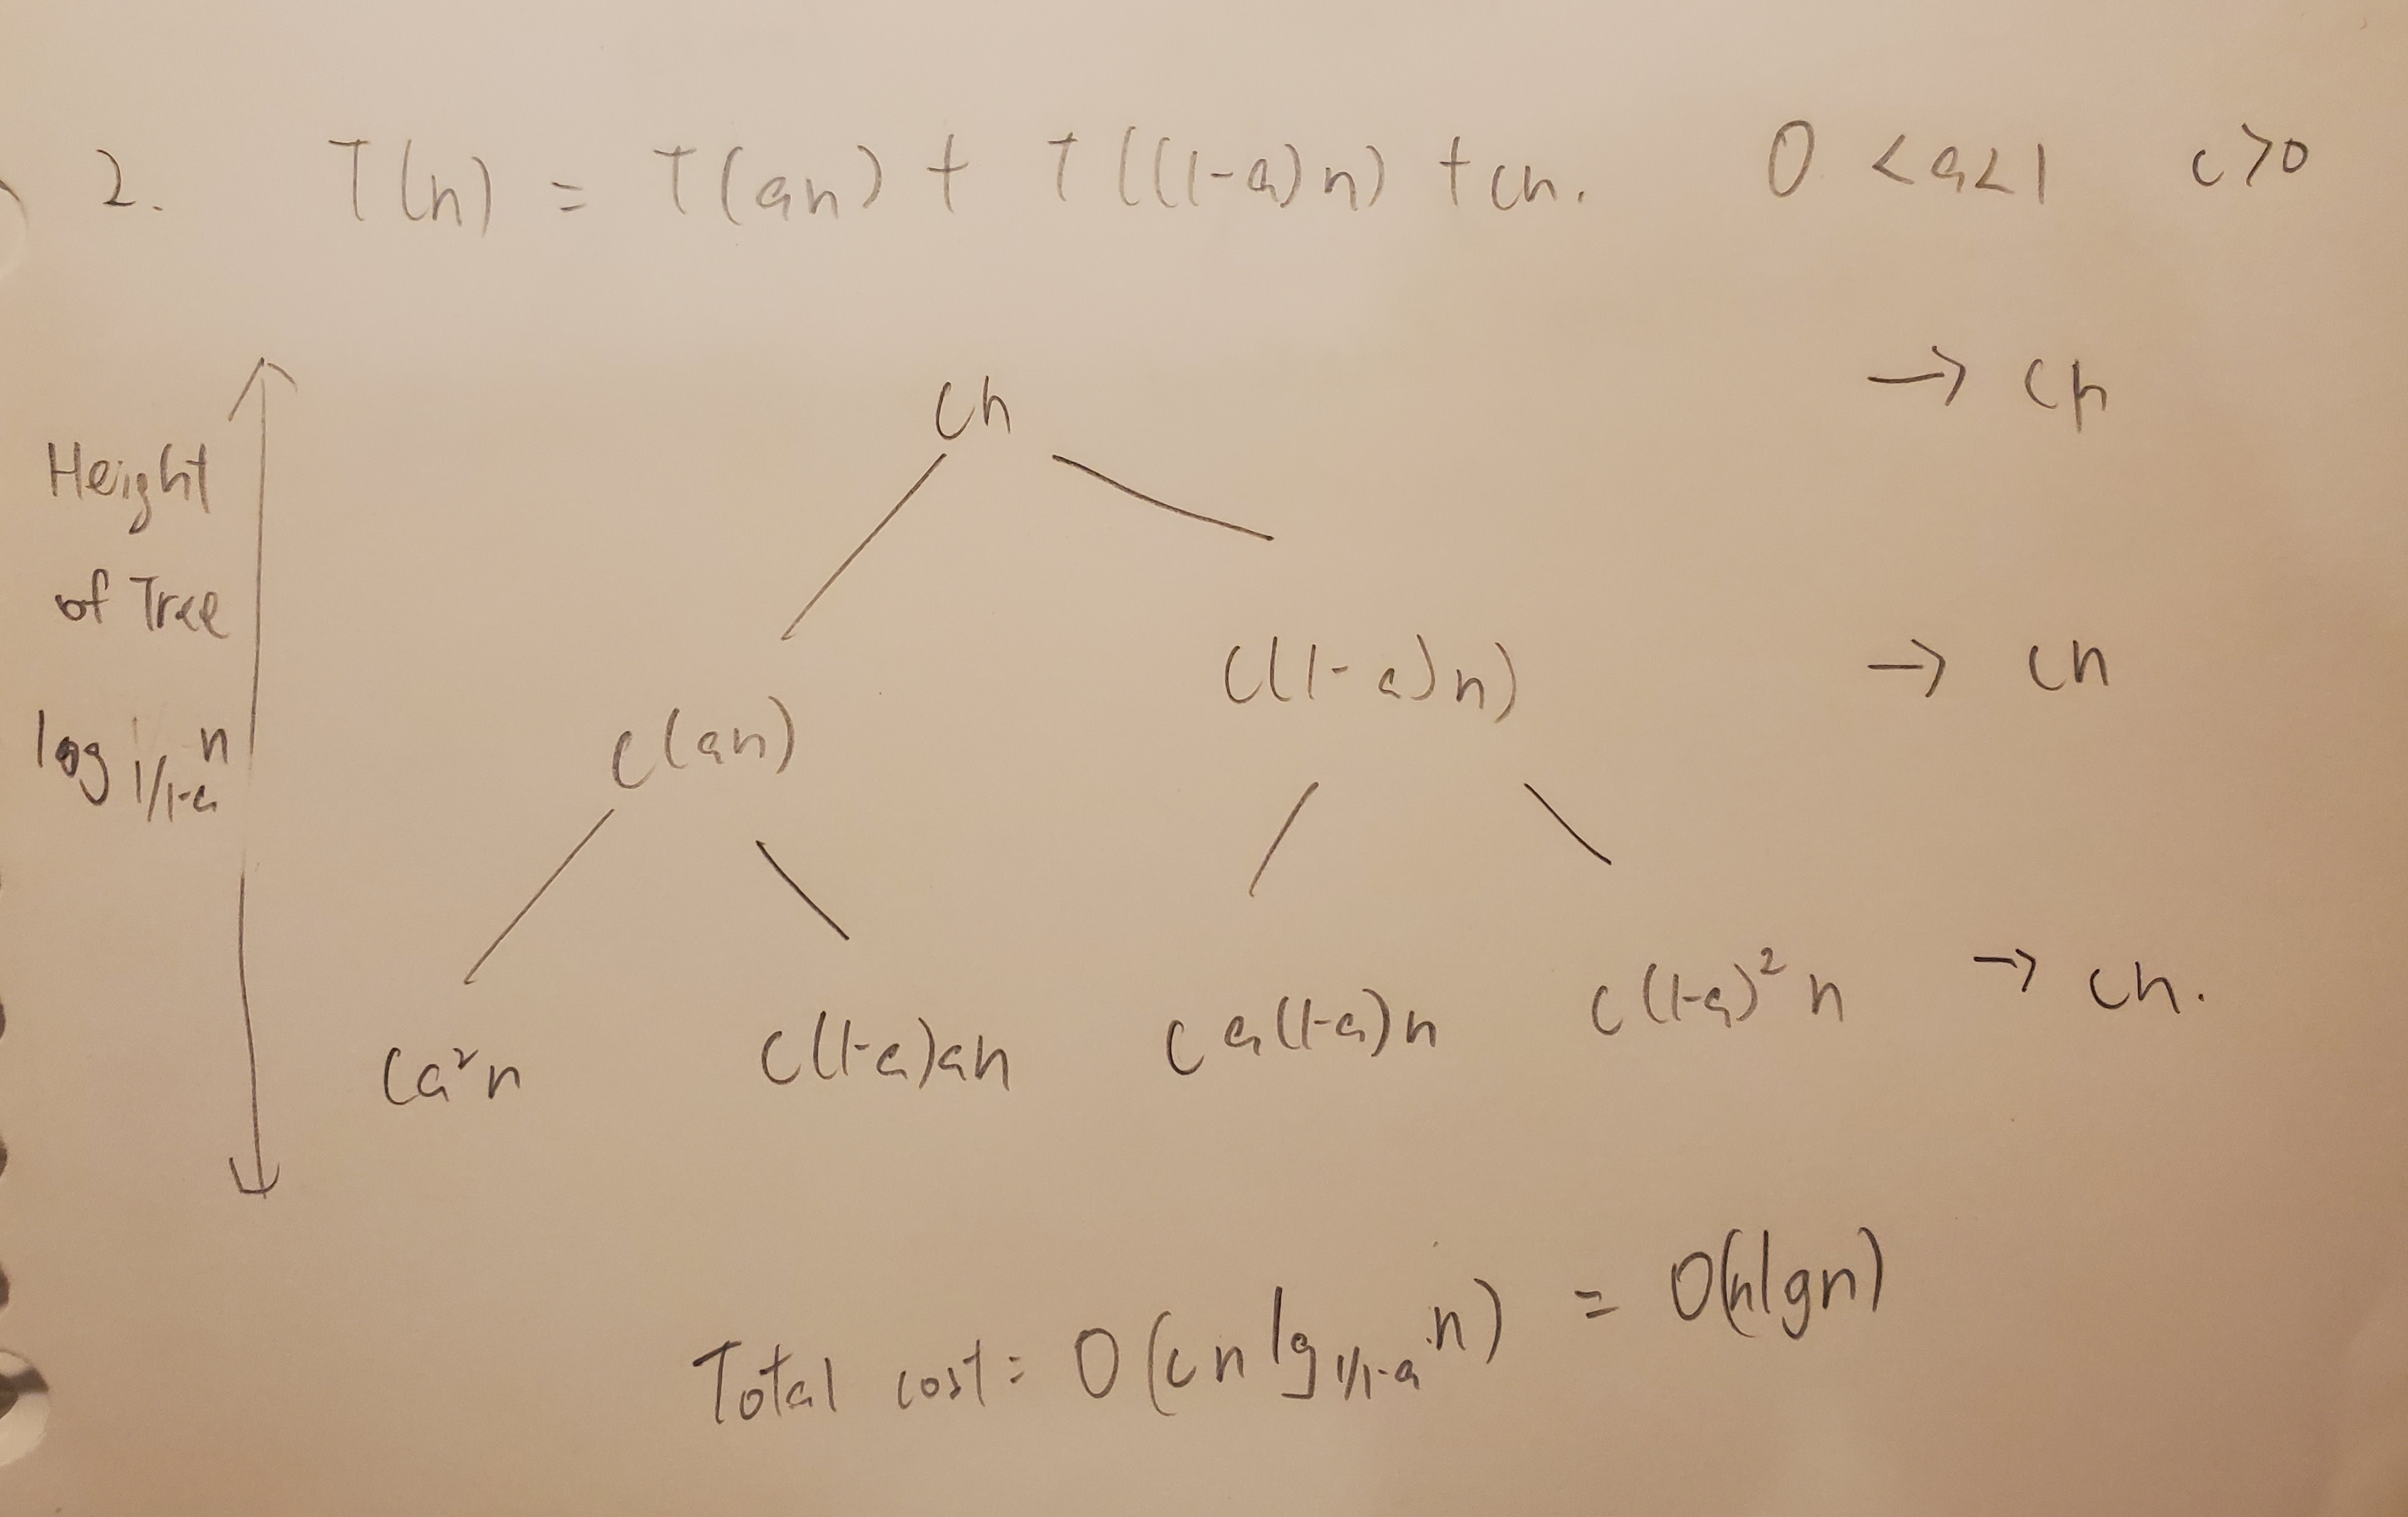 2. T(n) = T(an) + T((1-a)n) + cn. 0 < a < 1 c > 0
cn → cn
Height
of Tree
log 1/1-a n
c(an) c(1-a)n) → cn
ca²n c(1-a)an ca(1-a)n c(1-a)²n → cn.
Total cost: O(cn lg 1/1-a n) = O(nlgn)